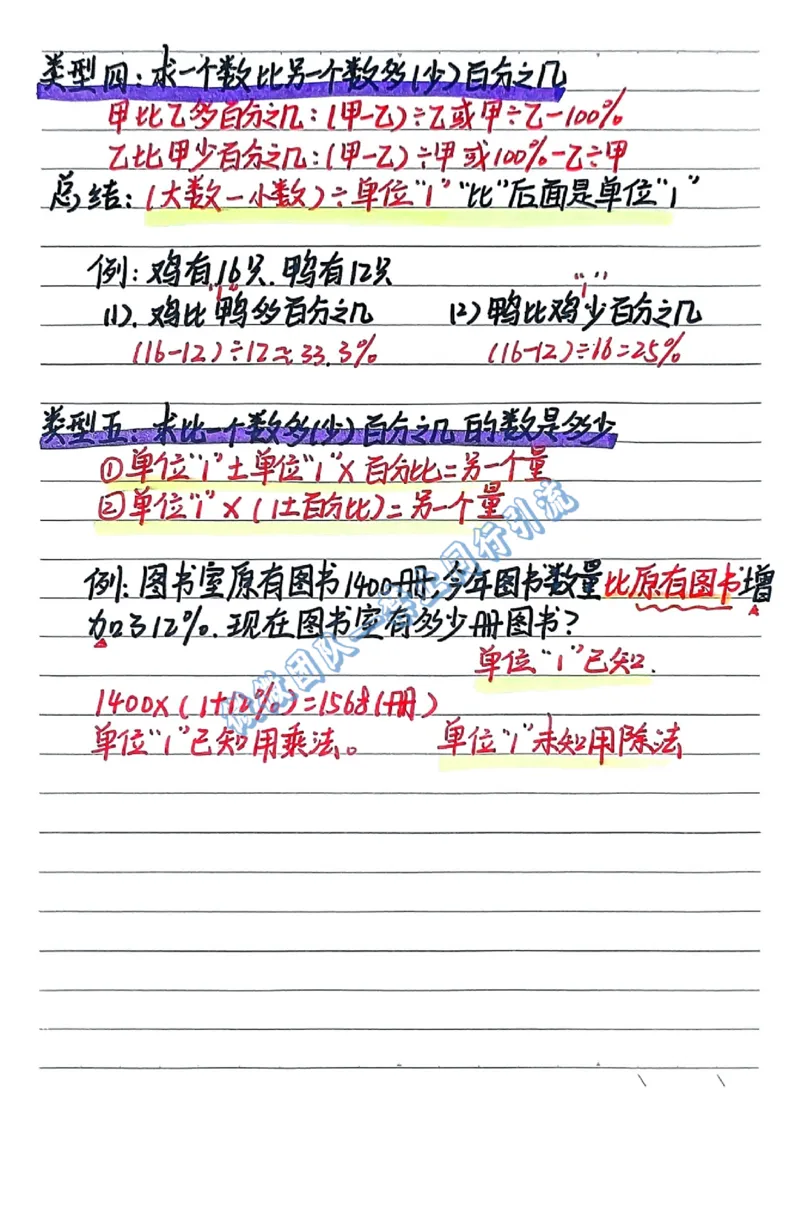 类型四：求一个数比另一个数多(少)百分之几
甲比乙多百分之几：(甲-乙)÷乙或甲÷乙-100%
乙比甲少百分之几：(甲-乙)÷甲或100%-乙÷甲
总结：(大数-小数)÷单位"1" "比"后面是单位"1"
例：鸡有16只.鸭有12只
"1" "1"
(1).鸡比鸭多百分之几 (2)鸭比鸡少百分之几
(16-12)÷12≈33.3% (16-12)÷16=25%
类型五：求比一个数多(少)百分之几的数是多少
①单位"1"±单位"1"×百分比=另一个量
②单位"1"×(1±百分比)=另一个量
例：图书室原有图书1400册,今年图书数量比原有图书增
加了12%.现在图书室有多少册图书?
单位"1"已知.
1400×(1+12%)=1568(册)
单位"1"已知用乘法。 单位"1"未知用除法